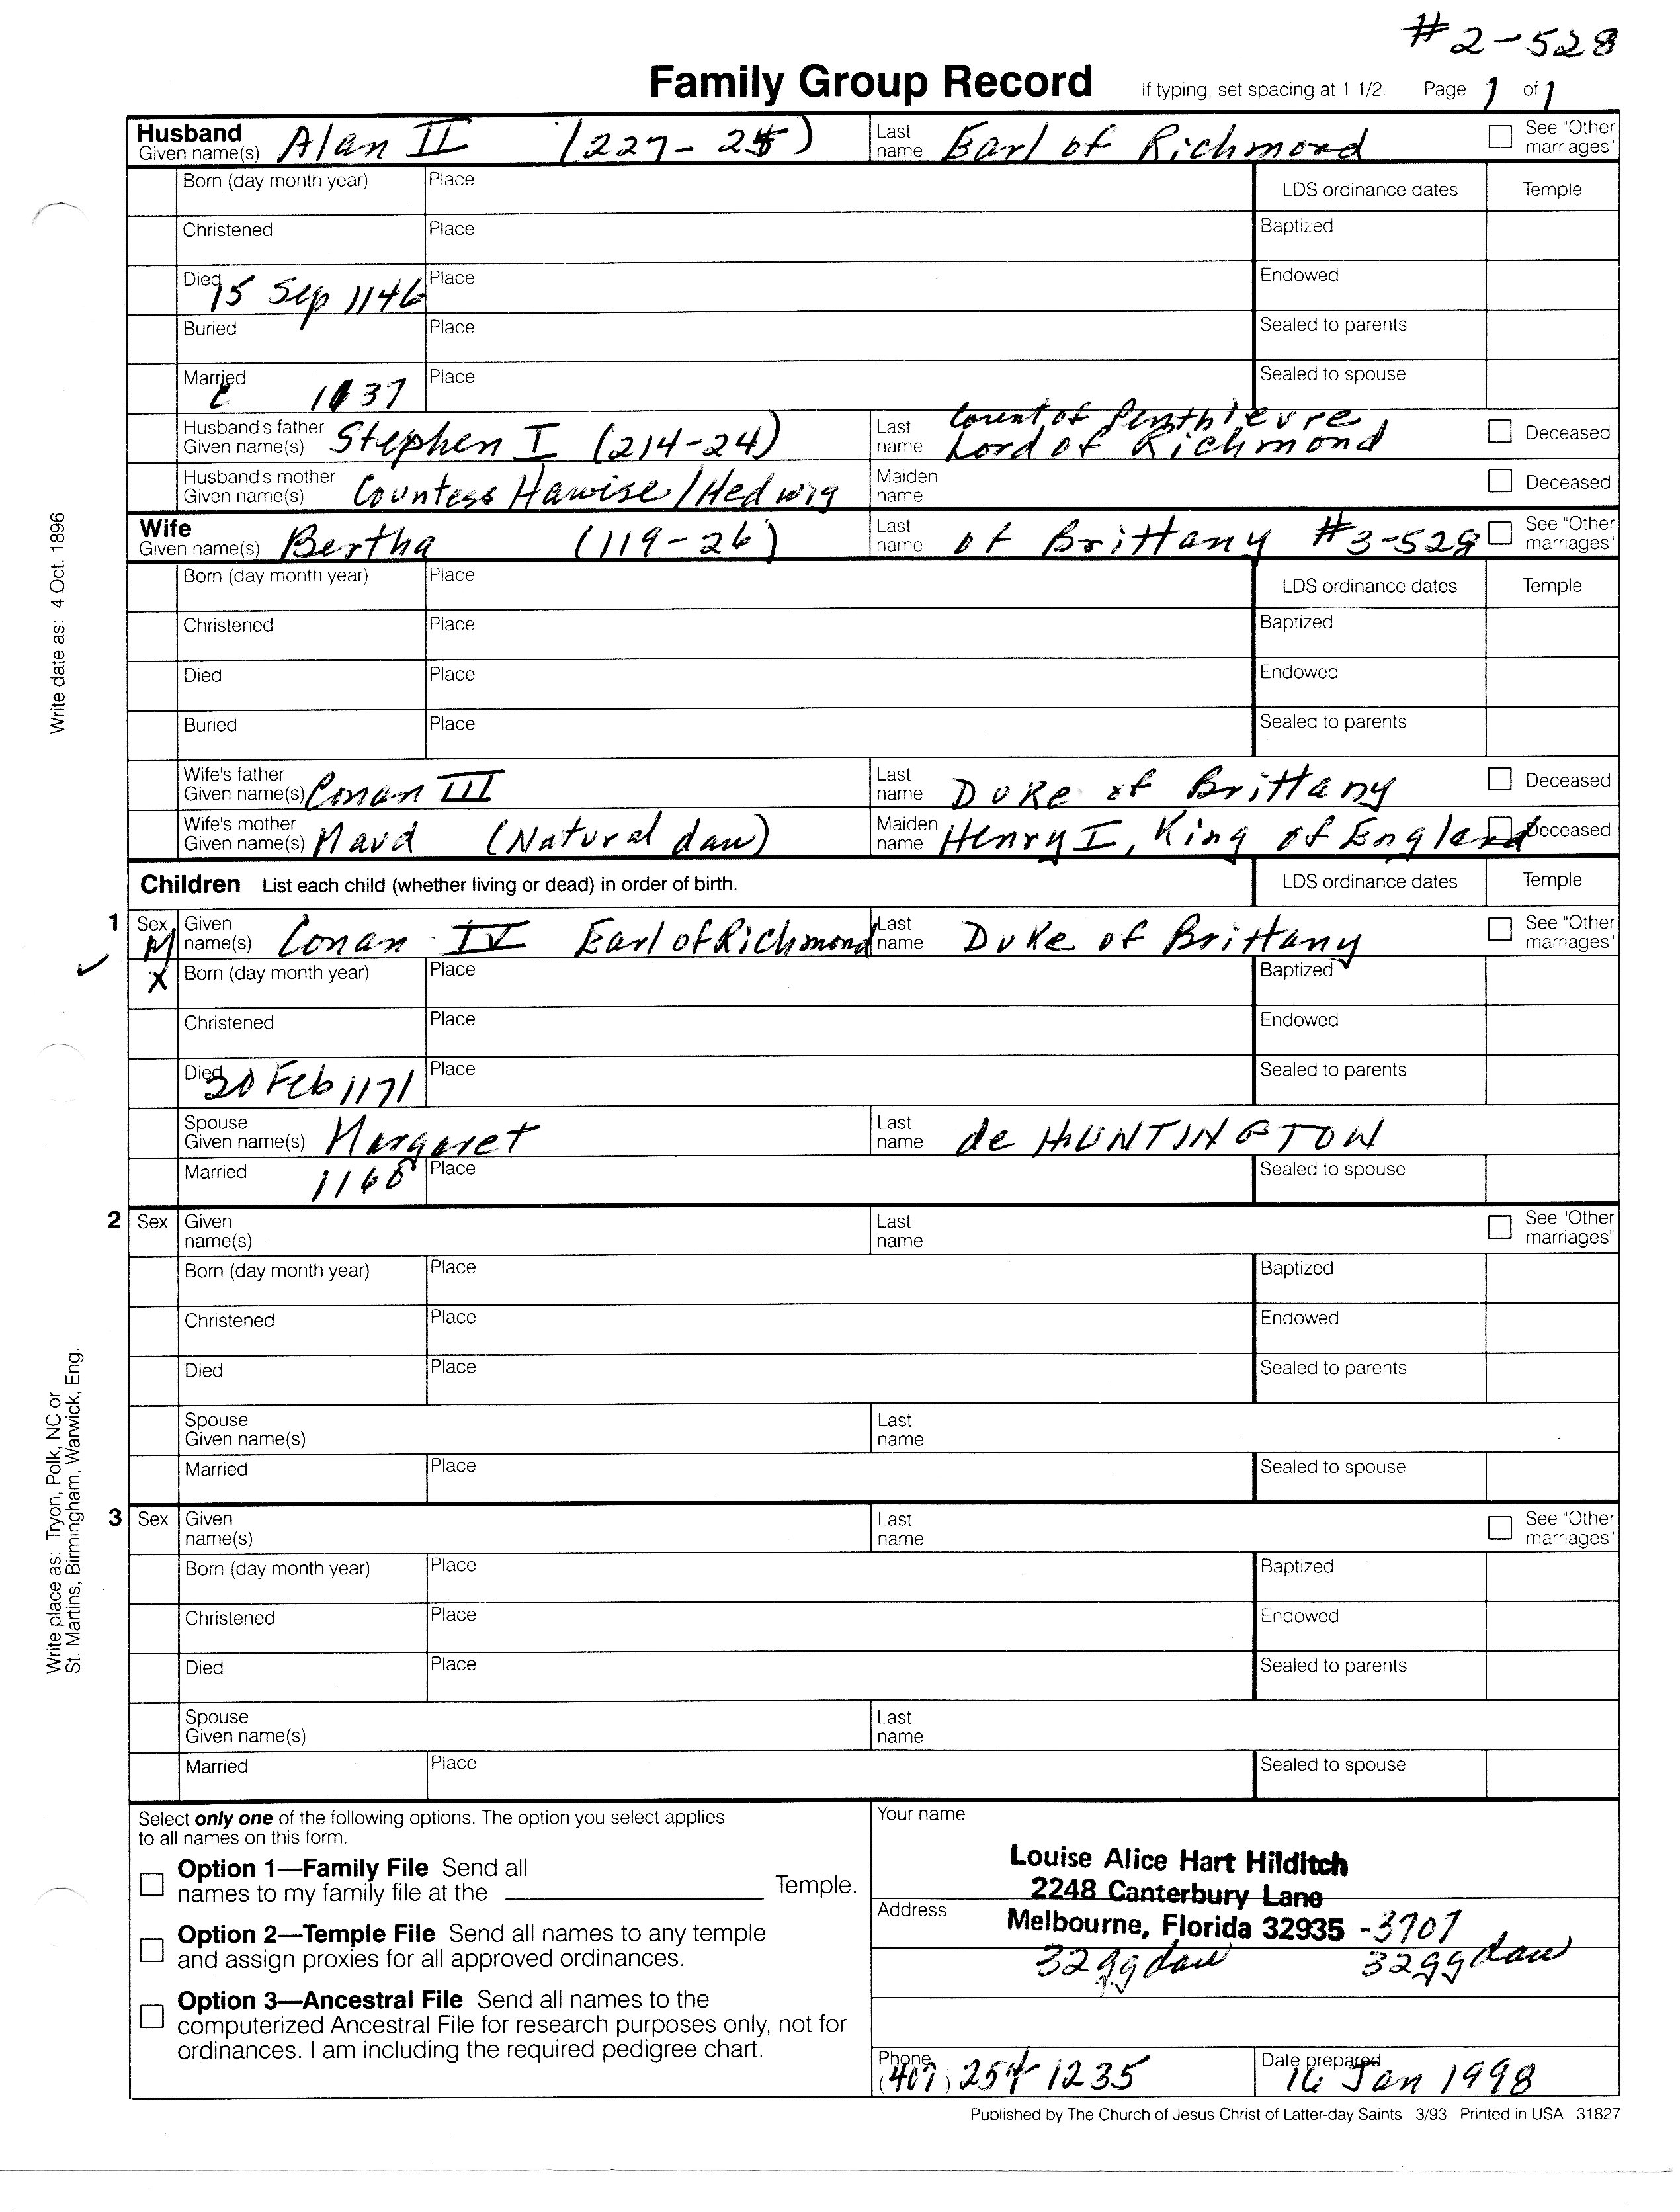 #2-528
Family Group Record If typing, set spacing at 1 1/2. Page 1 of 1
Husband Given name(s) Alan II (227-25) Last name Earl of Richmond See "Other marriages"
Born (day month year) Place LDS ordinance dates Temple
Christened Place Baptized
Died 15 Sep 1146 Place Endowed
Buried Place Sealed to parents
Married c 1137 Place Sealed to spouse
Husband's father Given name(s) Stephen I (214-24) Last name Count of Penthievre Lord of Richmond Deceased
Husband's mother Given name(s) Countess Hawise/Hedwig Maiden name Deceased
Wife Given name(s) Bertha (119-26) Last name of Brittany #3-528 See "Other marriages"
Born (day month year) Place LDS ordinance dates Temple
Christened Place Baptized
Died Place Endowed
Buried Place Sealed to parents
Wife's father Given name(s) Conan III Last name Duke of Brittany Deceased
Wife's mother Given name(s) Maud (Natural dau) Maiden name Henry I, King of England Deceased
Children List each child (whether living or dead) in order of birth. LDS ordinance dates Temple
1 Sex M Given name(s) Conan IV Earl of Richmond Last name Duke of Brittany See "Other marriages"
X Born (day month year) Place Baptized
Christened Place Endowed
Died 20 Feb 1171 Place Sealed to parents
Spouse Given name(s) Margaret Last name de HUNTINGTON
Married 1160 Place Sealed to spouse
2 Sex Given name(s) Last name See "Other marriages"
Born (day month year) Place Baptized
Christened Place Endowed
Died Place Sealed to parents
Spouse Given name(s) Last name
Married Place Sealed to spouse
3 Sex Given name(s) Last name See "Other marriages"
Born (day month year) Place Baptized
Christened Place Endowed
Died Place Sealed to parents
Spouse Given name(s) Last name
Married Place Sealed to spouse
Select only one of the following options. The option you select applies
to all names on this form.
Option 1—Family File Send all
names to my family file at the Temple.
Option 2—Temple File Send all names to any temple
and assign proxies for all approved ordinances.
Option 3—Ancestral File Send all names to the
computerized Ancestral File for research purposes only, not for
ordinances. I am including the required pedigree chart.
Your name
Louise Alice Hart Hilditch
2248 Canterbury Lane
Address
Melbourne, Florida 32935 -3707
32ggdau 32ggdau
Phone (407) 254 1235 Date prepared 16 Jan 1998
Published by The Church of Jesus Christ of Latter-day Saints 3/93 Printed in USA 31827
Write date as: 4 Oct. 1896
Write place as: Tryon, Polk, NC or
St. Martins, Birmingham, Warwick, Eng.